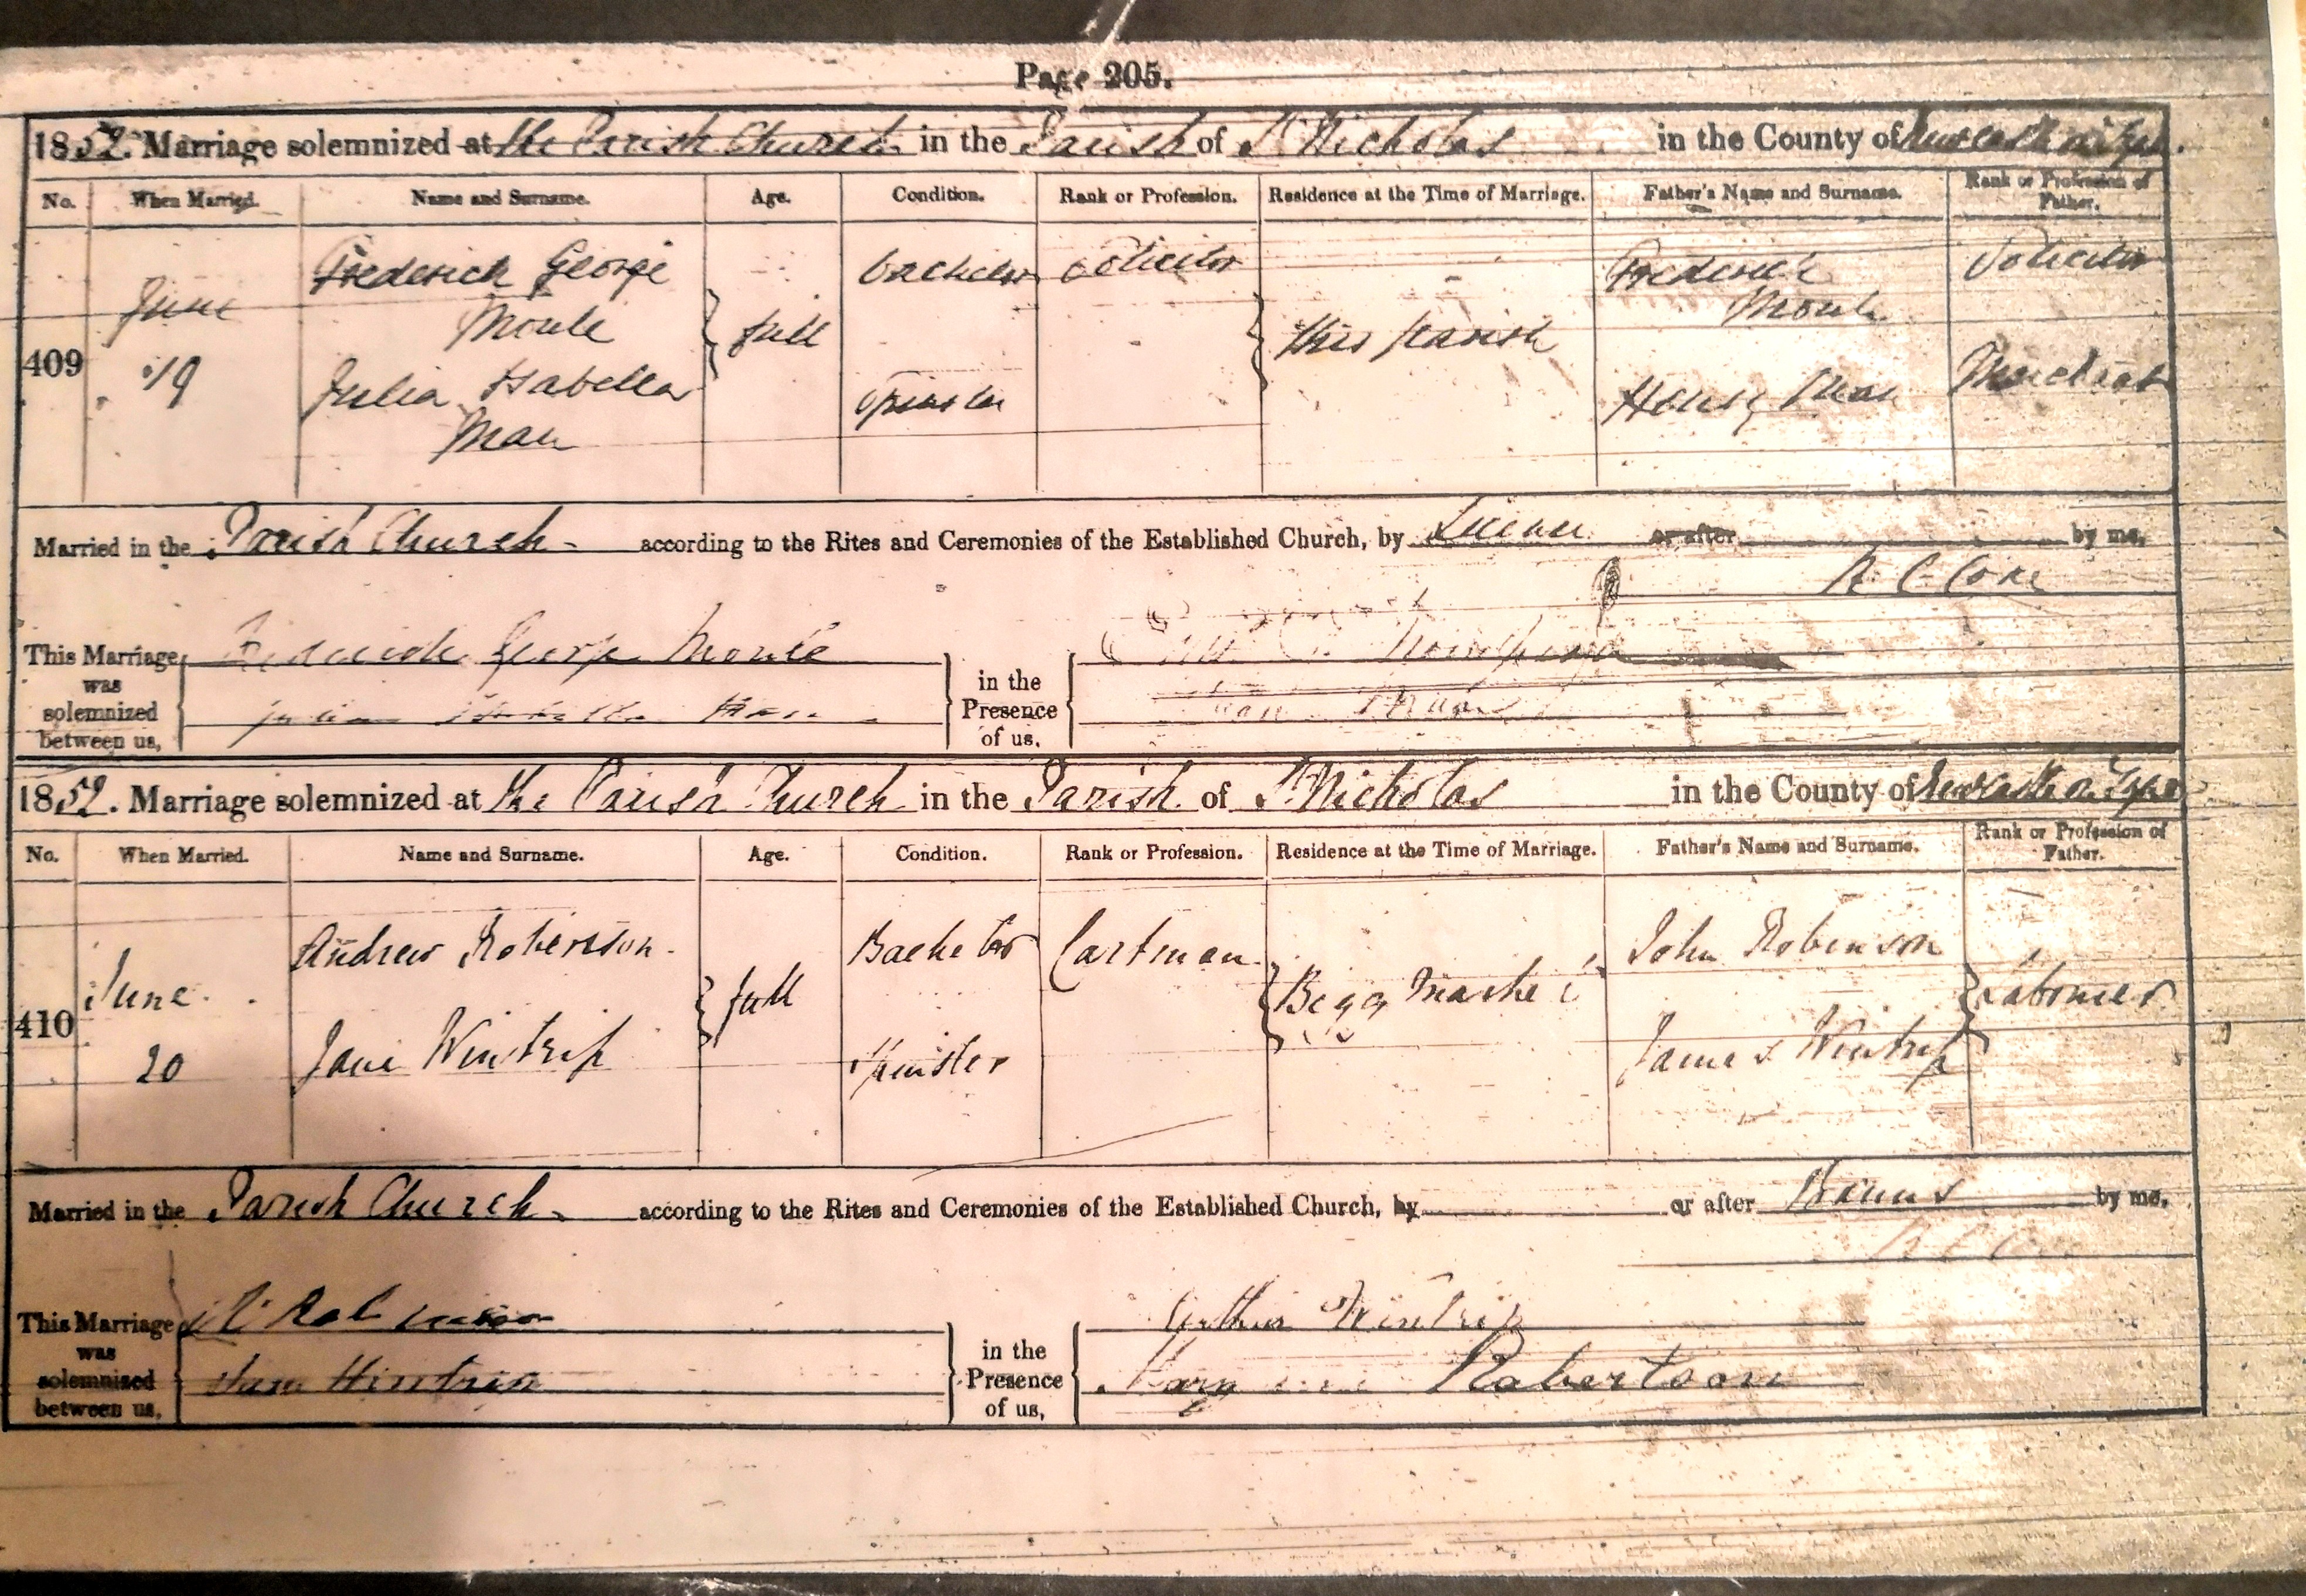 Page 205.
1852. Marriage solemnized at the Parish Church in the Parish of St Nicholas in the County of Newcastle
No. When Married. Name and Surname. Age. Condition. Rank or Profession. Residence at the Time of Marriage. Father's Name and Surname. Rank or Profession of Father.
409 June 19
Frederick George Moule
full
Bachelor
Solicitor
This Parish
Frederick Moule
Solicitor
Julia Isabella Man
Spinster
Henry Man
Merchant
Married in the Parish Church according to the Rites and Ceremonies of the Established Church, by Licence or after by me,
R C Coxe
This Marriage was solemnized between us,
Frederick George Moule
Julia Isabella Man
in the Presence of us,
1852. Marriage solemnized at the Parish Church in the Parish of St Nicholas in the County of Newcastle
No. When Married. Name and Surname. Age. Condition. Rank or Profession. Residence at the Time of Marriage. Father's Name and Surname. Rank or Profession of Father.
410 June 20
Andrew Robinson
full
Bachelor
Cartman
Bigg Market
John Robinson
Labourer
Jane Wintrip
Spinster
James Wintrip
Married in the Parish Church according to the Rites and Ceremonies of the Established Church, by or after Banns by me,
R C Coxe
This Marriage was solemnized between us,
Robinson
Jane Wintrip
in the Presence of us,
Arthur Wintrip
Mary Robertson